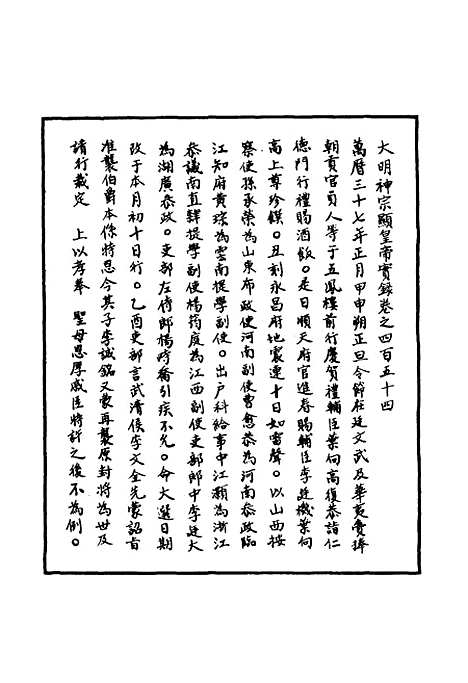 大明神宗顯皇帝實錄卷之四百五十四
萬曆三十七年正月甲申朔正旦令節在廷文武及華夷賫捧
朝貢官員人等于五鳳樓前行慶賀禮輔臣葉向高復恭詣仁
德門行禮賜酒飯。是日順天府官進春賜輔臣李廷機葉向
高上尊珍饌。丑刻永昌府地震連十日如雷聲。以山西按
察使孫承榮為山東布政使河南副使曹愈叅為河南叅政臨
江知府黃琮為雲南提學副使。出戶科給事中江灝為浙江
叅議南直隸提學副使楊筠庭為江西副使吏部郎中李廷大
為湖廣叅政。吏部左侍郎楊時喬引疾不允。命大選日期
改于本月初十日行。乙酉吏部言武清侯李文全先蒙詔旨
准襲伯爵本係特恩今其子李誠銘又蒙再襲原封將為世及
請行裁定 上以孝奉 聖母恩厚戚臣特許之後不為例。